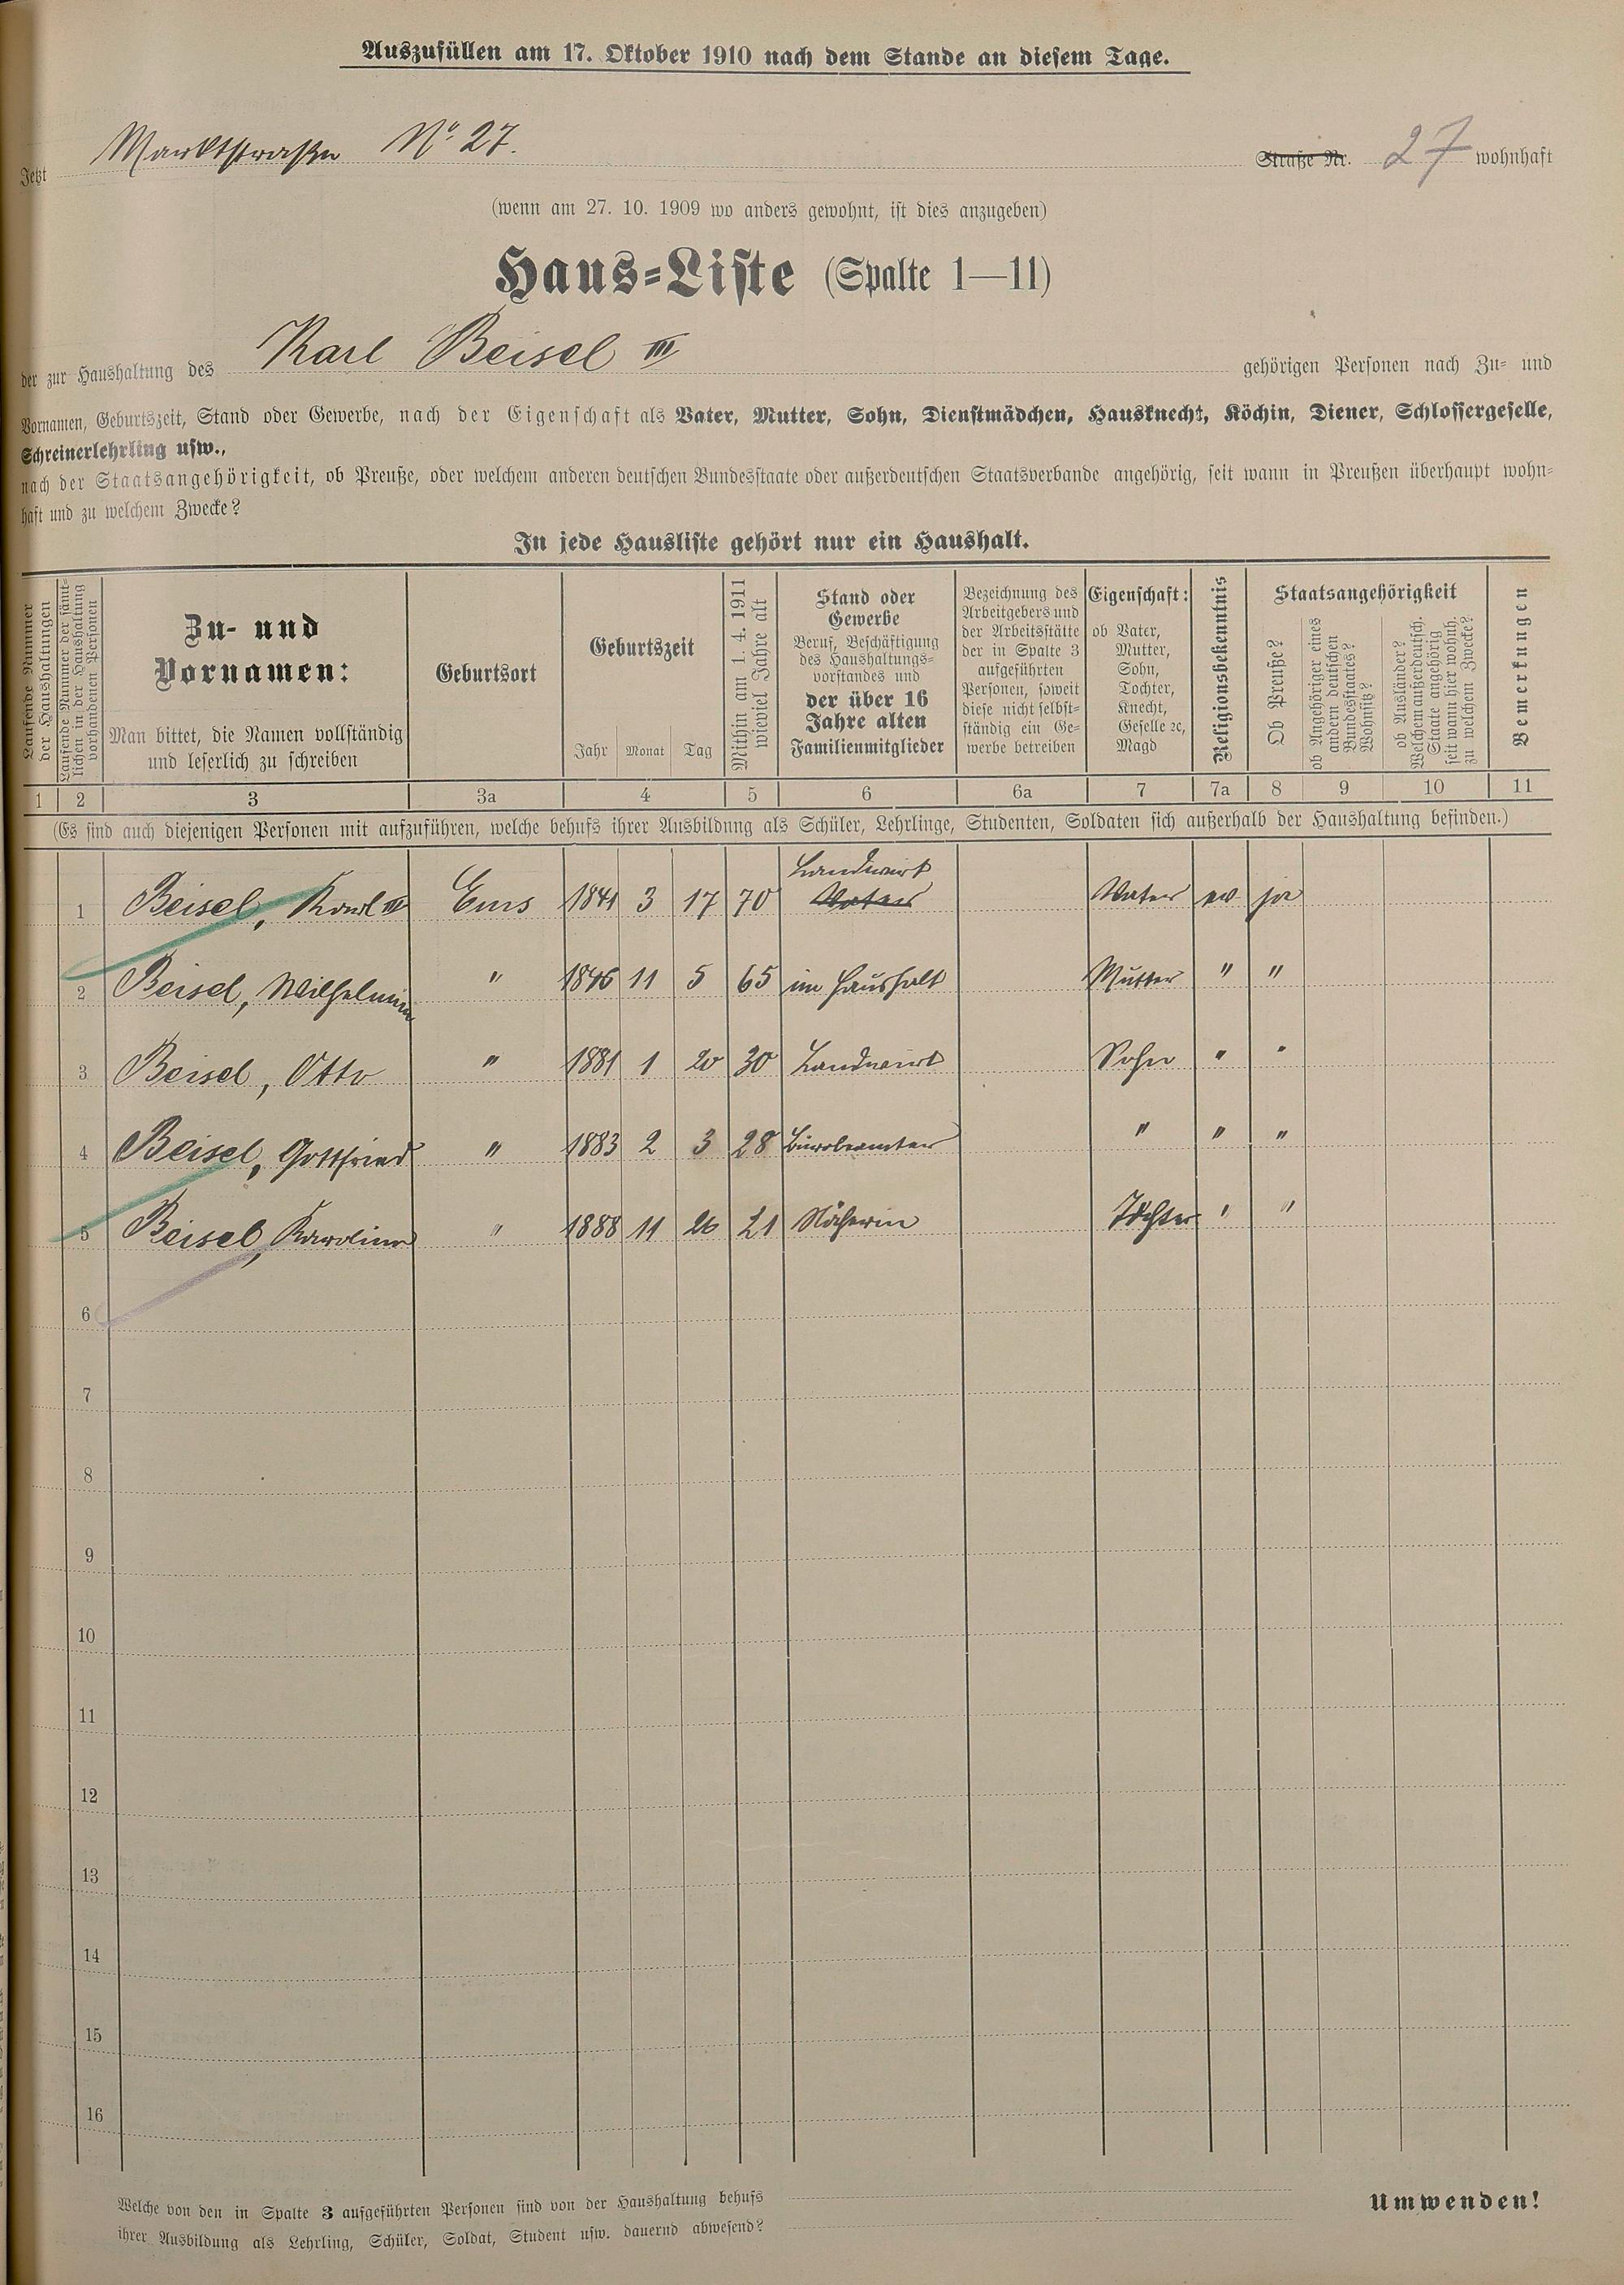 Auszufüllen am 17. Oktober 1910 nach dem Stande an diesem Tage.
Jetzt Marktstraße No 27. Straße Nr. 27 wohnhaft
(wenn am 27. 10. 1909 wo anders gewohnt, ist dies anzugeben)
Haus-Liste (Spalte 1—11)
der zur Haushaltung des Karl Beisel III gehörigen Personen nach Zu- und
Vornamen, Geburtszeit, Stand oder Gewerbe, nach der Eigenschaft als Vater, Mutter, Sohn, Dienstmädchen, Hausknecht, Köchin, Diener, Schlossergeselle,
Schreinerlehrling usw.,
nach der Staatsangehörigkeit, ob Preuße, oder welchem anderen deutschen Bundesstaate oder außerdeutschen Staatsverbande angehörig, seit wann in Preußen überhaupt wohn-
haft und zu welchem Zwecke?
In jede Hausliste gehört nur ein Haushalt.
Laufende Nummer
der Haushaltungen
Laufende Nummer der sämt-
lichen in der Haushaltung
vorhandenen Personen
Zu- und
Vornamen:
Man bittet, die Namen vollständig
und leserlich zu schreiben
Geburtsort
Geburtszeit
Jahr Monat Tag
Mithin am 1. 4. 1911
wieviel Jahre alt
Stand oder
Gewerbe
Beruf, Beschäftigung
des Haushaltungs-
vorstandes und
der über 16
Jahre alten
Familienmitglieder
Bezeichnung des
Arbeitgebers und
der Arbeitsstätte
der in Spalte 3
aufgeführten
Personen, soweit
diese nicht selbst-
ständig ein Ge-
werbe betreiben
Eigenschaft:
ob Vater,
Mutter,
Sohn,
Tochter,
Knecht,
Geselle ꝛc,
Magd
Religionsbekenntnis
Staatsangehörigkeit
Ob Preuße?
ob Angehöriger eines
andern deutschen
Bundesstaates?
Wohnsitz?
ob Ausländer?
Welchem außerdeutsch.
Staate angehörig
seit wann hier wohnh.
zu welchem Zwecke?
Bemerkungen
1 2 3 3a 4 5 6 6a 7 7a 8 9 10 11
(Es sind auch diejenigen Personen mit aufzuführen, welche behufs ihrer Ausbildung als Schüler, Lehrlinge, Studenten, Soldaten sich außerhalb der Haushaltung befinden.)
Landwirt
1 Beisel, Karl III Ems 1841 3 17 70 Vater Vater ev ja
2 Beisel, Wilhelmine " 1846 11 5 65 im Haushalt Mutter " "
3 Beisel, Otto " 1881 1 20 30 Landwirt Sohn " "
4 Beisel, Gottfried " 1883 2 3 28 Bürobeamter " " "
5 Beisel, Karoline " 1888 11 26 21 Näherin Tochter " "
6
7
8
9
10
11
12
13
14
15
16
Welche von den in Spalte 3 aufgeführten Personen sind von der Haushaltung behufs
ihrer Ausbildung als Lehrling, Schüler, Soldat, Student usw. dauernd abwesend?
Umwenden!